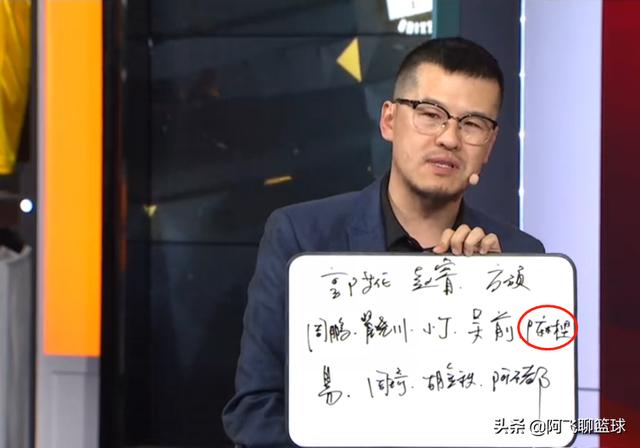 郭艾伦 赵睿 方硕
周鹏 翟晓川 小丁 吴前 陈林坚
易 周琦 胡金秋 阿不都
头条 @阿飞聊篮球